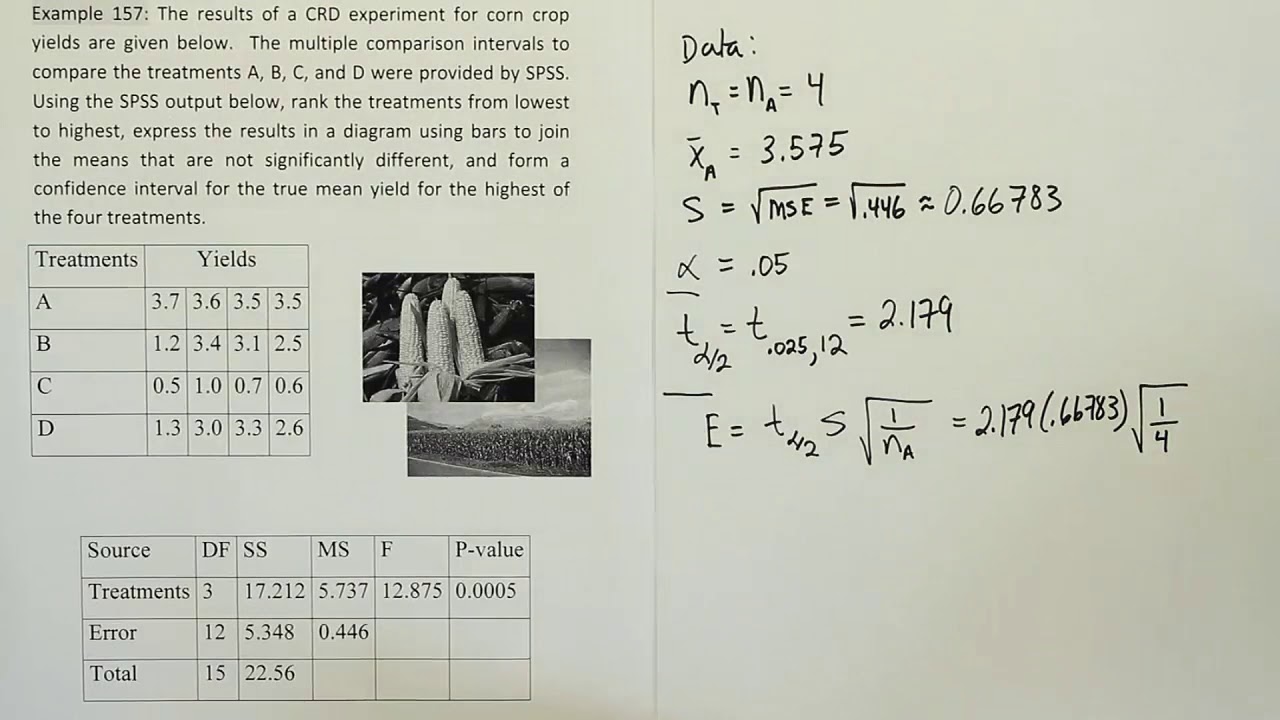 Example 157: The results of a CRD experiment for corn crop
yields are given below. The multiple comparison intervals to
compare the treatments A, B, C, and D were provided by SPSS.
Using the SPSS output below, rank the treatments from lowest
to highest, express the results in a diagram using bars to join
the means that are not significantly different, and form a
confidence interval for the true mean yield for the highest of
the four treatments.
Treatments Yields
A 3.7 3.6 3.5 3.5
B 1.2 3.4 3.1 2.5
C 0.5 1.0 0.7 0.6
D 1.3 3.0 3.3 2.6
Source DF SS MS F P-value
Treatments 3 17.212 5.737 12.875 0.0005
Error 12 5.348 0.446
Total 15 22.56
Data:
n_T = n_A = 4
x̄_A = 3.575
S = √MSE = √.446 ≈ 0.66783
α = .05
t_α/2 = t_.025,12 = 2.179
E = t_α/2 S √(1/n_A) = 2.179(.66783)√(1/4)